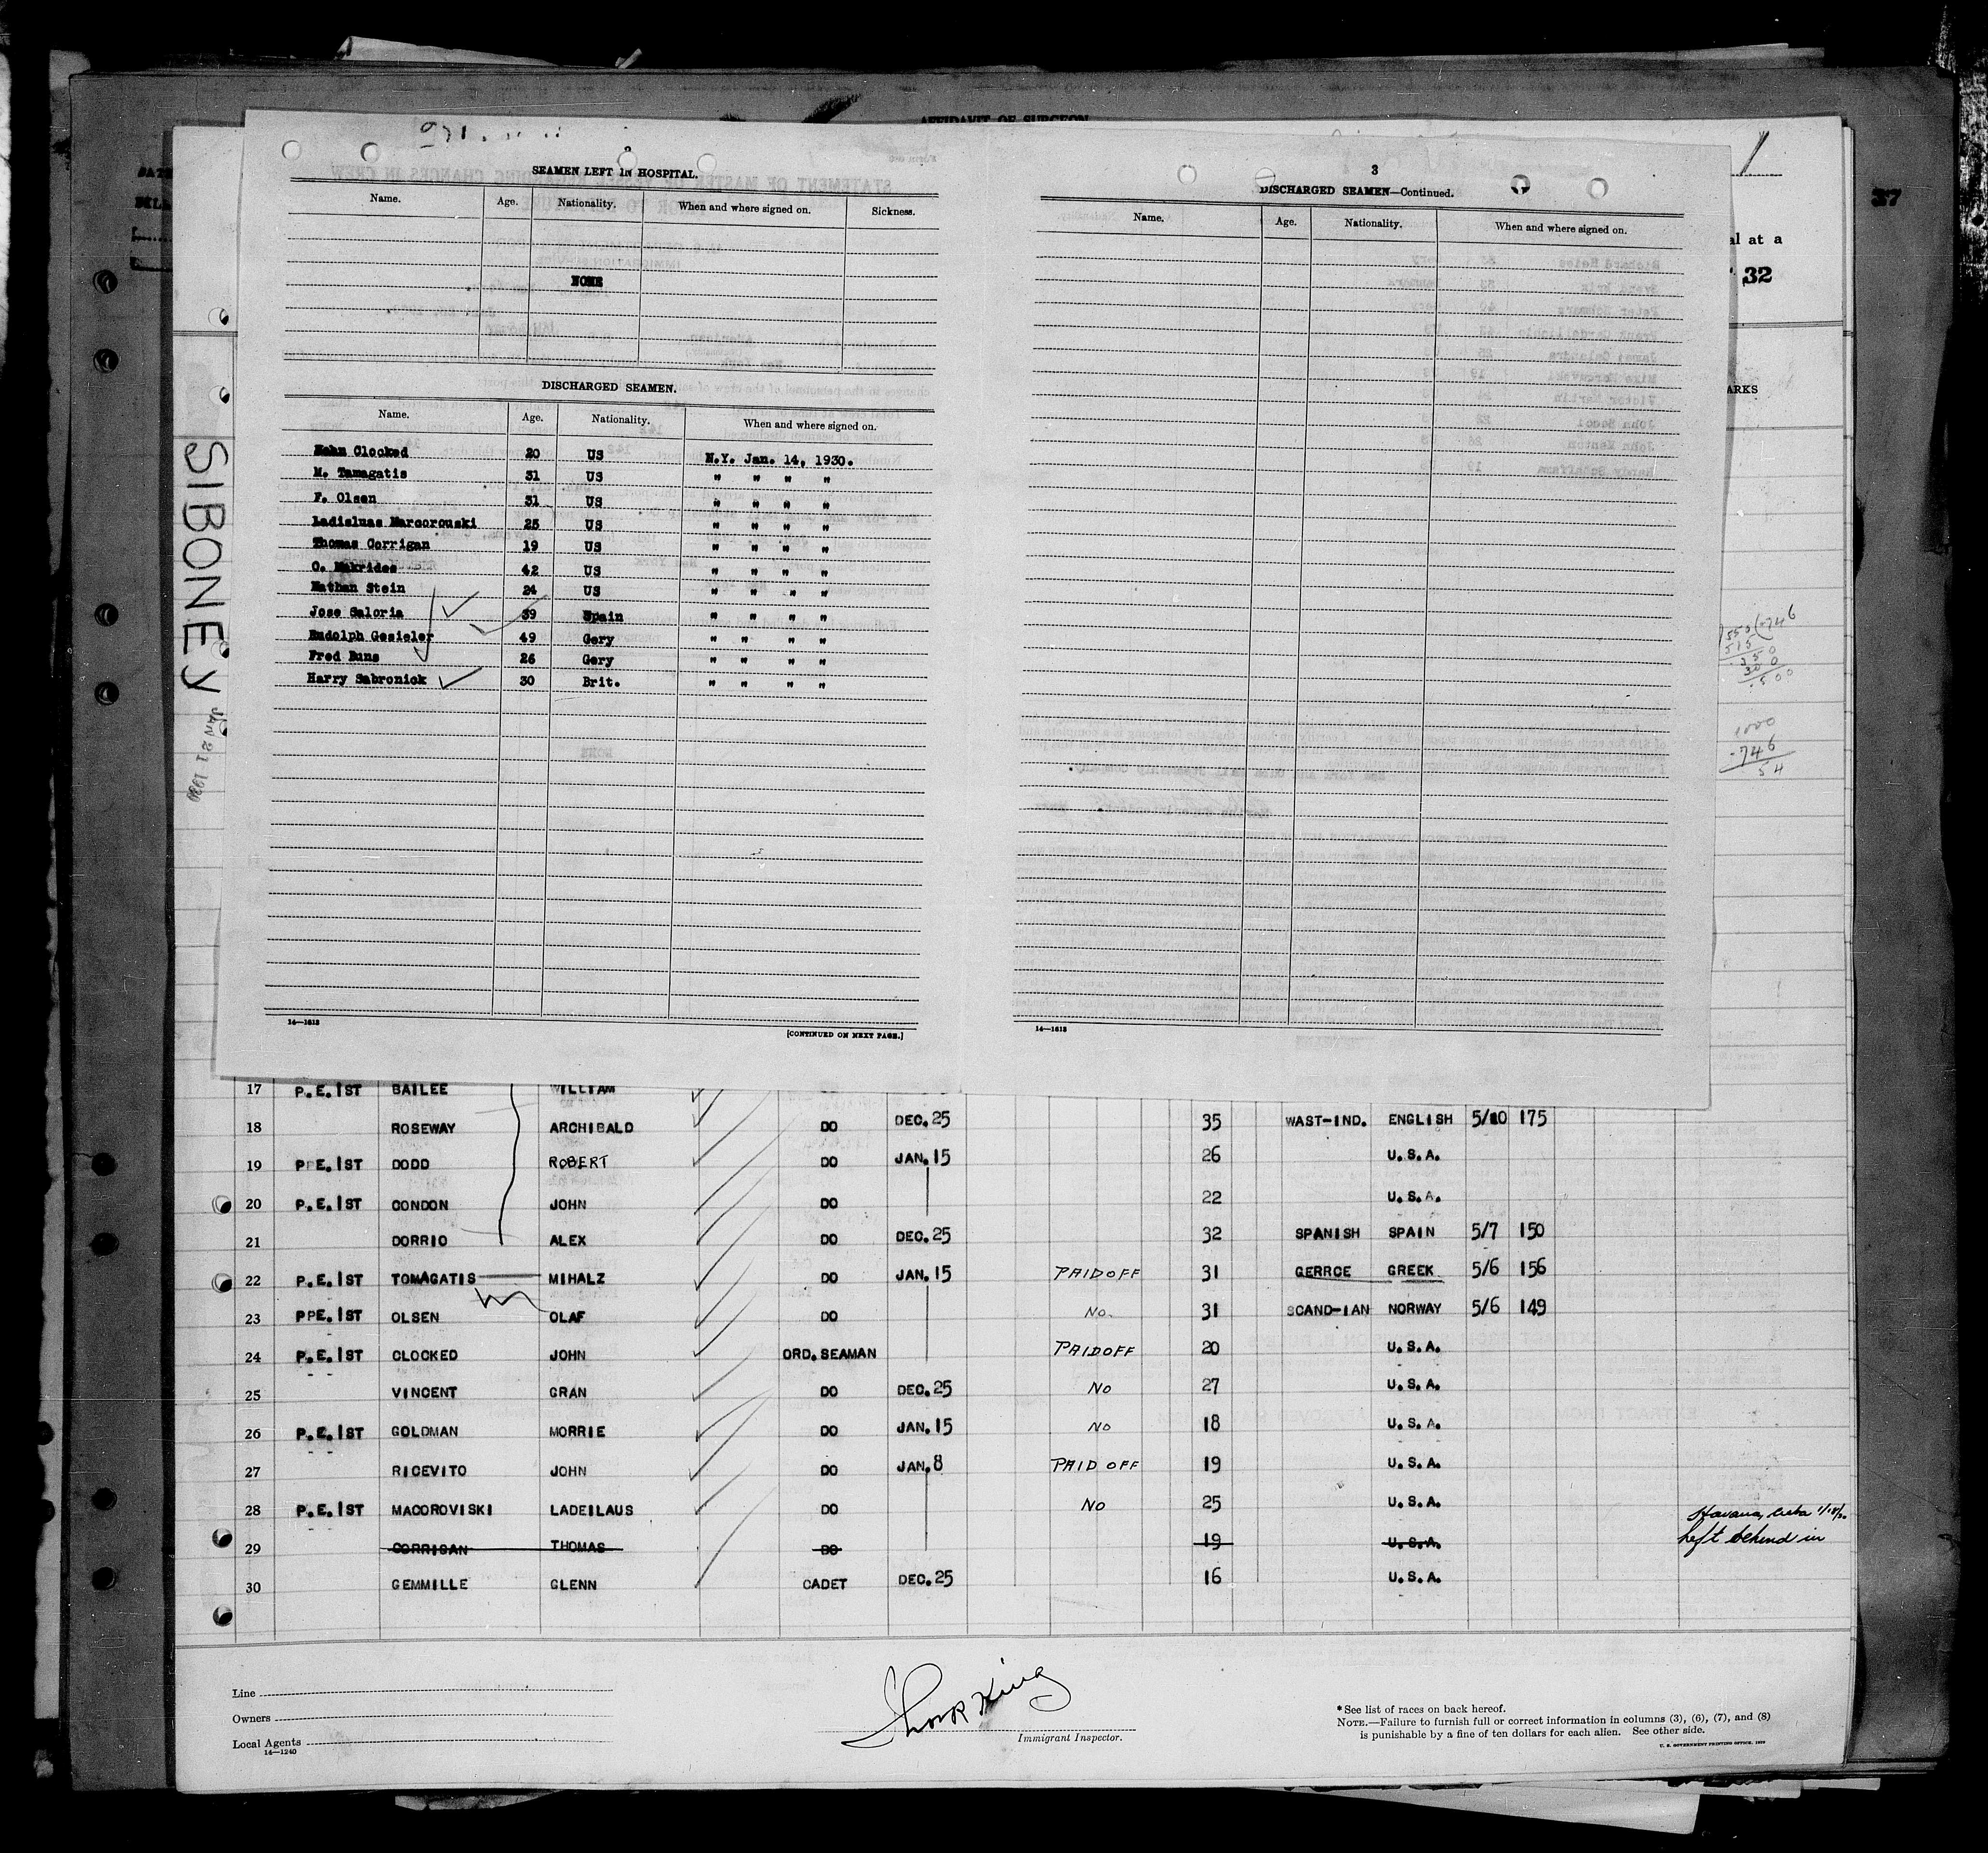 AFFIDAVIT OF SURGEON
SEAMEN LEFT IN HOSPITAL.
Name. Age. Nationality. When and where signed on. Sickness.
NONE
DISCHARGED SEAMEN.
Name. Age. Nationality. When and where signed on.
Clocked 20 US N.Y. Jan. 14, 1930.
M. Tamagatis 31 US " " " "
F. Olsen 31 US " " " "
Ladisluas Marcorouski 25 US " " " "
Thomas Corrigan 19 US " " " "
O. Makrides 42 US " " " "
Nathan Stein 24 US " " " "
Jose Saloria 39 Spain " " " "
Rudolph Gesieler 49 Gery " " " "
Fred Buns 26 Gery " " " "
Harry Sabronick 30 Brit. " " " "
14—1613
[CONTINUED ON NEXT PAGE.]
3
DISCHARGED SEAMEN—Continued.
Name. Age. Nationality. When and where signed on.
14—1613
al at a
32
ARKS
27
SIBONEY
JAN 21 1930
1000
-746
54
17 P.E.1ST BAILEE WILLIAM
18 ROSEWAY ARCHIBALD DO DEC.25 35 WAST-IND. ENGLISH 5/10 175
19 PPE.1ST DODD ROBERT DO JAN.15 26 U.S.A.
20 P.E.1ST CONDON JOHN DO 22 U.S.A.
21 DORRIO ALEX DO DEC.25 32 SPANISH SPAIN 5/7 150
22 P.E.1ST TOMAGATIS MIHALZ DO JAN.15 PAID OFF 31 GERRCE GREEK 5/6 156
23 PPE.1ST OLSEN OLAF DO NO. 31 SCAND-IAN NORWAY 5/6 149
24 P.E.1ST CLOCKED JOHN ORD.SEAMAN PAID OFF 20 U.S.A.
25 VINCENT GRAN DO DEC.25 NO 27 U.S.A.
26 P.E.1ST GOLDMAN MORRIE DO JAN.15 NO 18 U.S.A.
27 RICEVITO JOHN DO JAN.8 PAID OFF 19 U.S.A.
28 P.E.1ST MACOROVISKI LADEILAUS DO NO 25 U.S.A.
Havana, Cuba 1/18/30
29 CORRIGAN THOMAS DO 19 U.S.A. left behind in
30 GEMMILLE GLENN CADET DEC.25 16 U.S.A.
Line
Owners
Local Agents
14—1240
Immigrant Inspector.
* See list of races on back hereof.
NOTE.—Failure to furnish full or correct information in columns (3), (6), (7), and (8)
is punishable by a fine of ten dollars for each alien. See other side.
U. S. GOVERNMENT PRINTING OFFICE: 1929